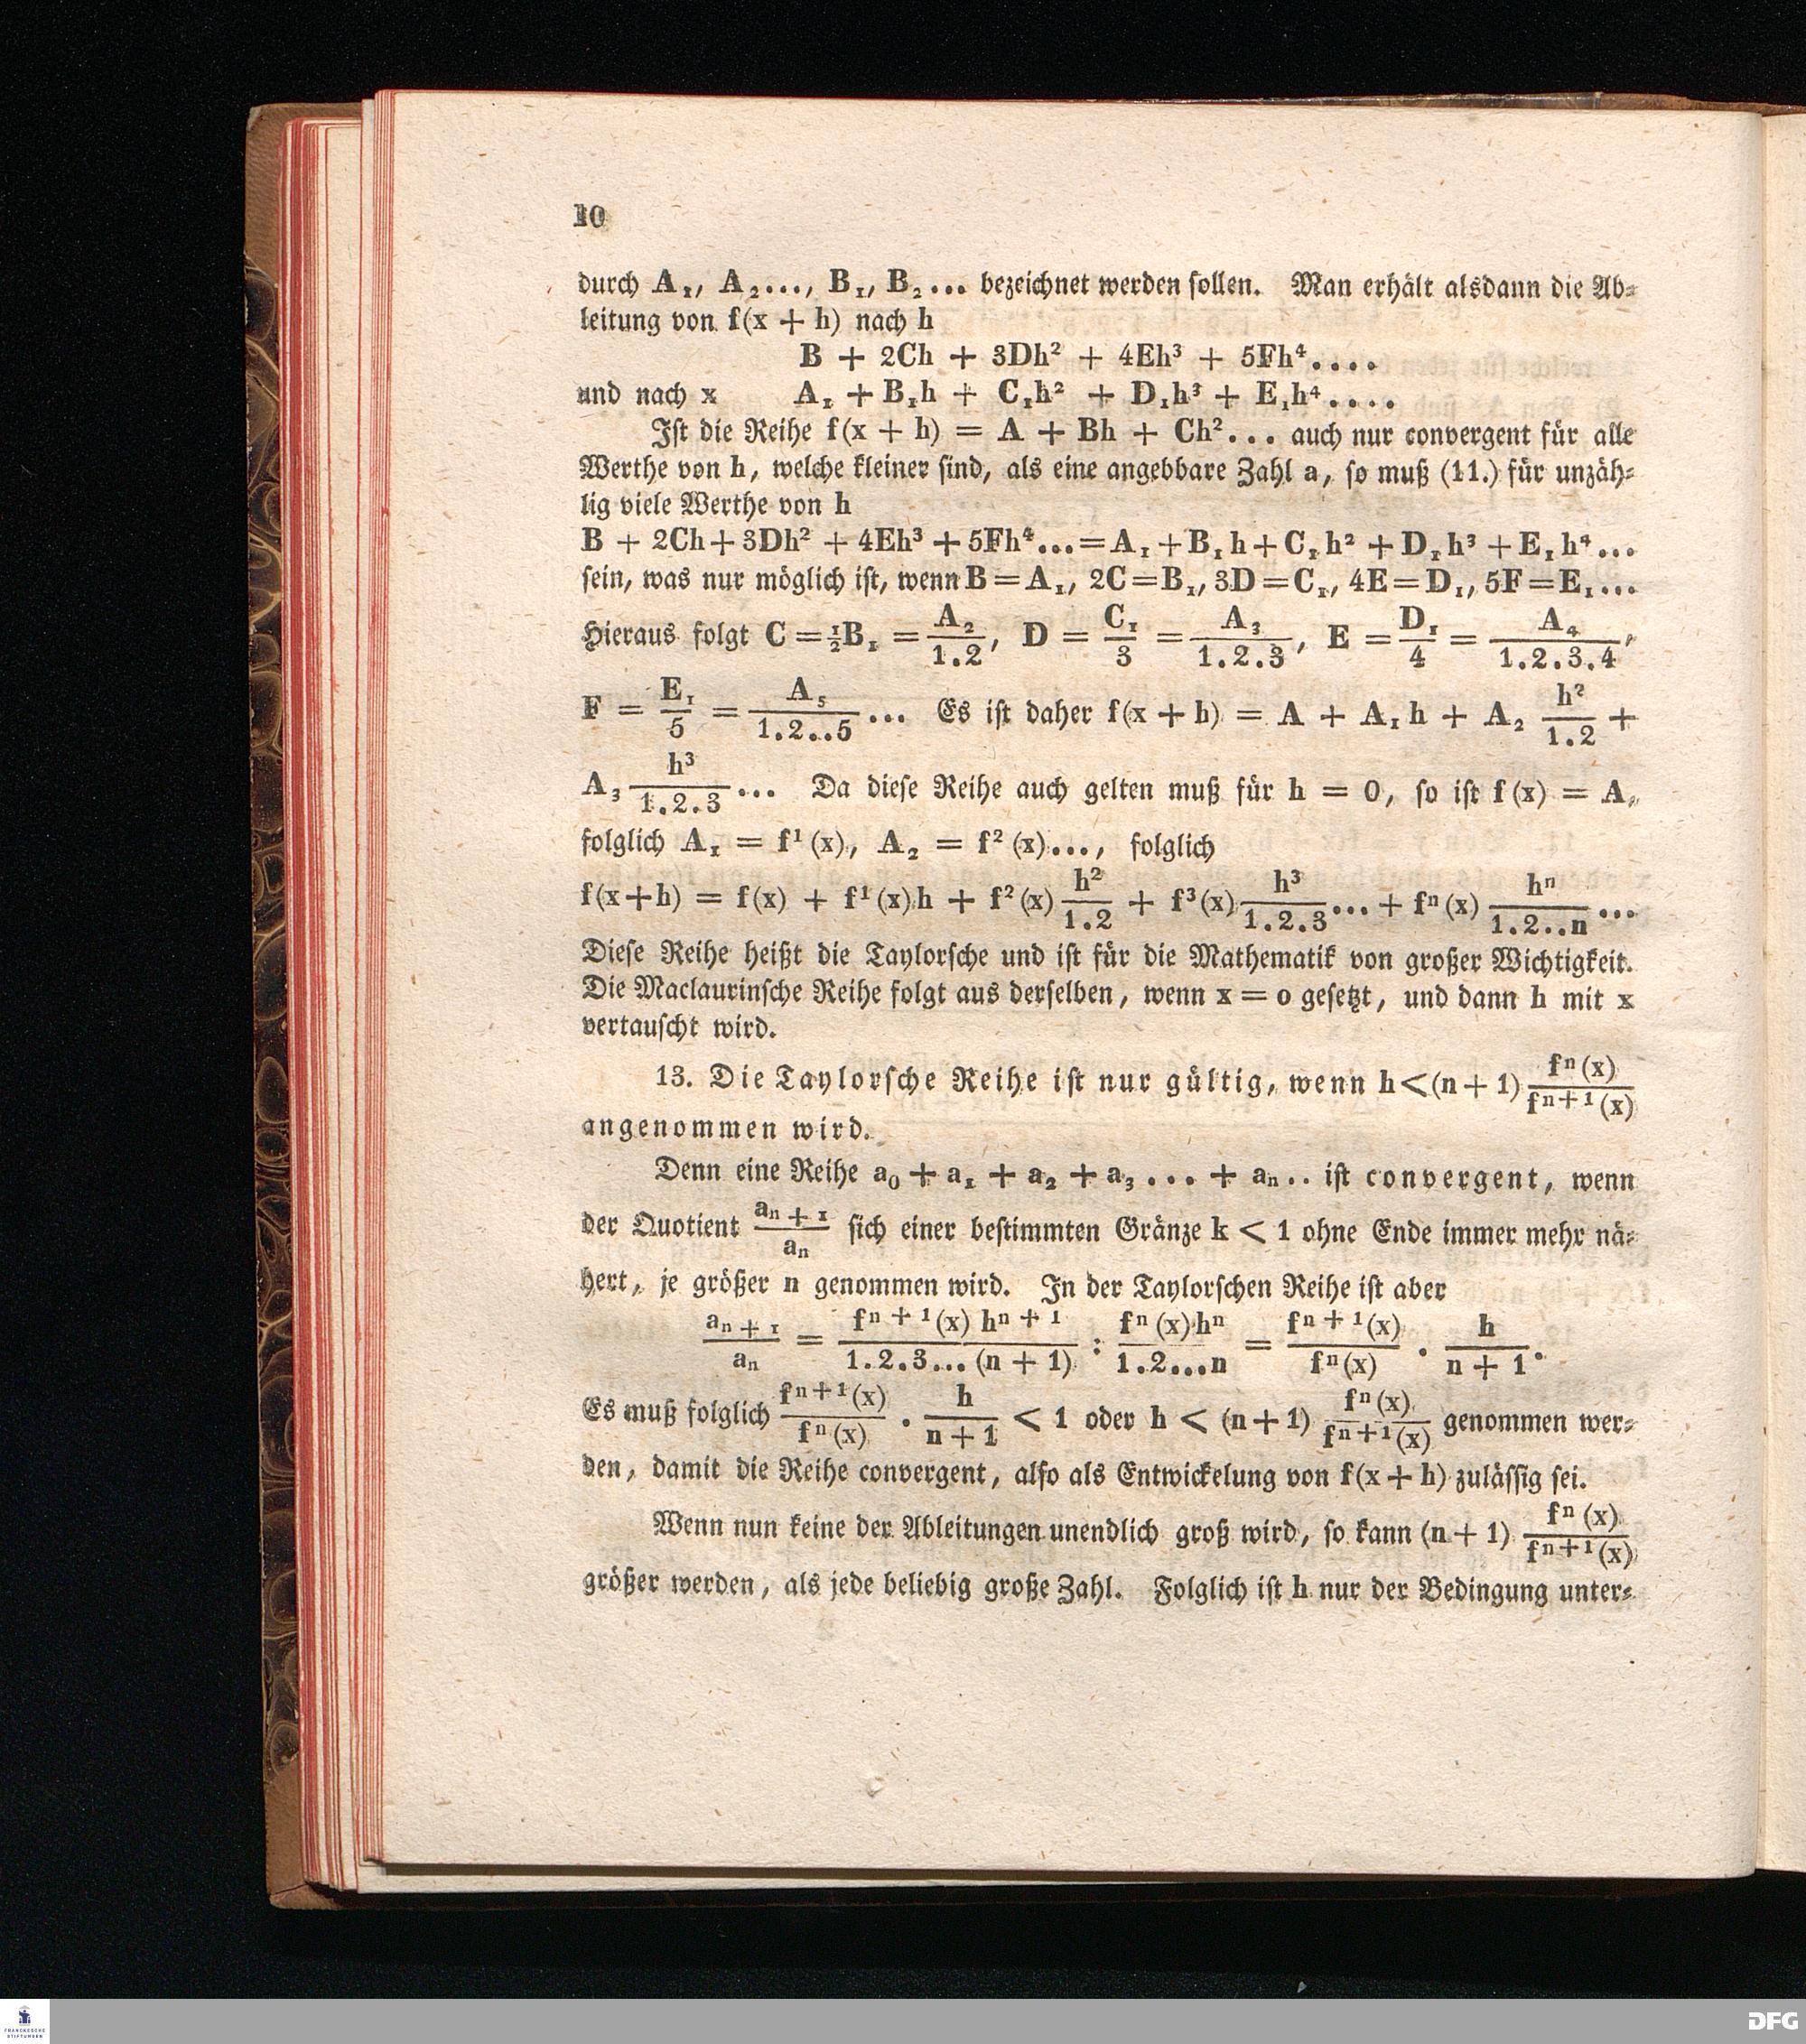 10
durch A₁, A₂..., B₁, B₂... bezeichnet werden sollen. Man erhält alsdann die Ab-
leitung von f(x + h) nach h
B + 2Ch + 3Dh² + 4Eh³ + 5Fh⁴....
und nach x A₁ + B₁h + C₁h² + D₁h³ + E₁h⁴....
Ist die Reihe f(x + h) = A + Bh + Ch²... auch nur convergent für alle
Werthe von h, welche kleiner sind, als eine angebbare Zahl a, so muß (11.) für unzäh-
lig viele Werthe von h
B + 2Ch + 3Dh² + 4Eh³ + 5Fh⁴... = A₁ + B₁h + C₁h² + D₁h³ + E₁h⁴...
sein, was nur möglich ist, wenn B = A₁, 2C = B₁, 3D = C₁, 4E = D₁, 5F = E₁...
Hieraus folgt C = ½B₁ = A₂/1.2, D = C₁/3 = A₃/1.2.3, E = D₁/4 = A₄/1.2.3.4,
F = E₁/5 = A₅/1.2..5... Es ist daher f(x + h) = A + A₁h + A₂ h²/1.2 +
A₃ h³/1.2.3... Da diese Reihe auch gelten muß für h = 0, so ist f(x) = A,
folglich A₁ = f¹(x), A₂ = f²(x)..., folglich
f(x+h) = f(x) + f¹(x)h + f²(x) h²/1.2 + f³(x) h³/1.2.3... + fⁿ(x) hⁿ/1.2..n...
Diese Reihe heißt die Taylorsche und ist für die Mathematik von großer Wichtigkeit.
Die Maclaurinsche Reihe folgt aus derselben, wenn x = o gesetzt, und dann h mit x
vertauscht wird.
13. Die Taylorsche Reihe ist nur gültig, wenn h < (n + 1) fⁿ(x)/fⁿ⁺¹(x)
angenommen wird.
Denn eine Reihe a₀ + a₁ + a₂ + a₃ ... + aₙ.. ist convergent, wenn
der Quotient aₙ₊₁/aₙ sich einer bestimmten Gränze k < 1 ohne Ende immer mehr nä-
hert, je größer n genommen wird. In der Taylorschen Reihe ist aber
aₙ₊₁/aₙ = fⁿ⁺¹(x) hⁿ⁺¹/1.2.3...(n + 1) : fⁿ(x)hⁿ/1.2...n = fⁿ⁺¹(x)/fⁿ(x) . h/n + 1.
Es muß folglich fⁿ⁺¹(x)/fⁿ(x) . h/n + 1 < 1 oder h < (n + 1) fⁿ(x)/fⁿ⁺¹(x) genommen wer-
den, damit die Reihe convergent, also als Entwickelung von f(x + h) zulässig sei.
Wenn nun keine der Ableitungen unendlich groß wird, so kann (n + 1) fⁿ(x)/fⁿ⁺¹(x)
größer werden, als jede beliebig große Zahl. Folglich ist h nur der Bedingung unter-
FRANCKESCHE
STIFTUNGEN
DFG